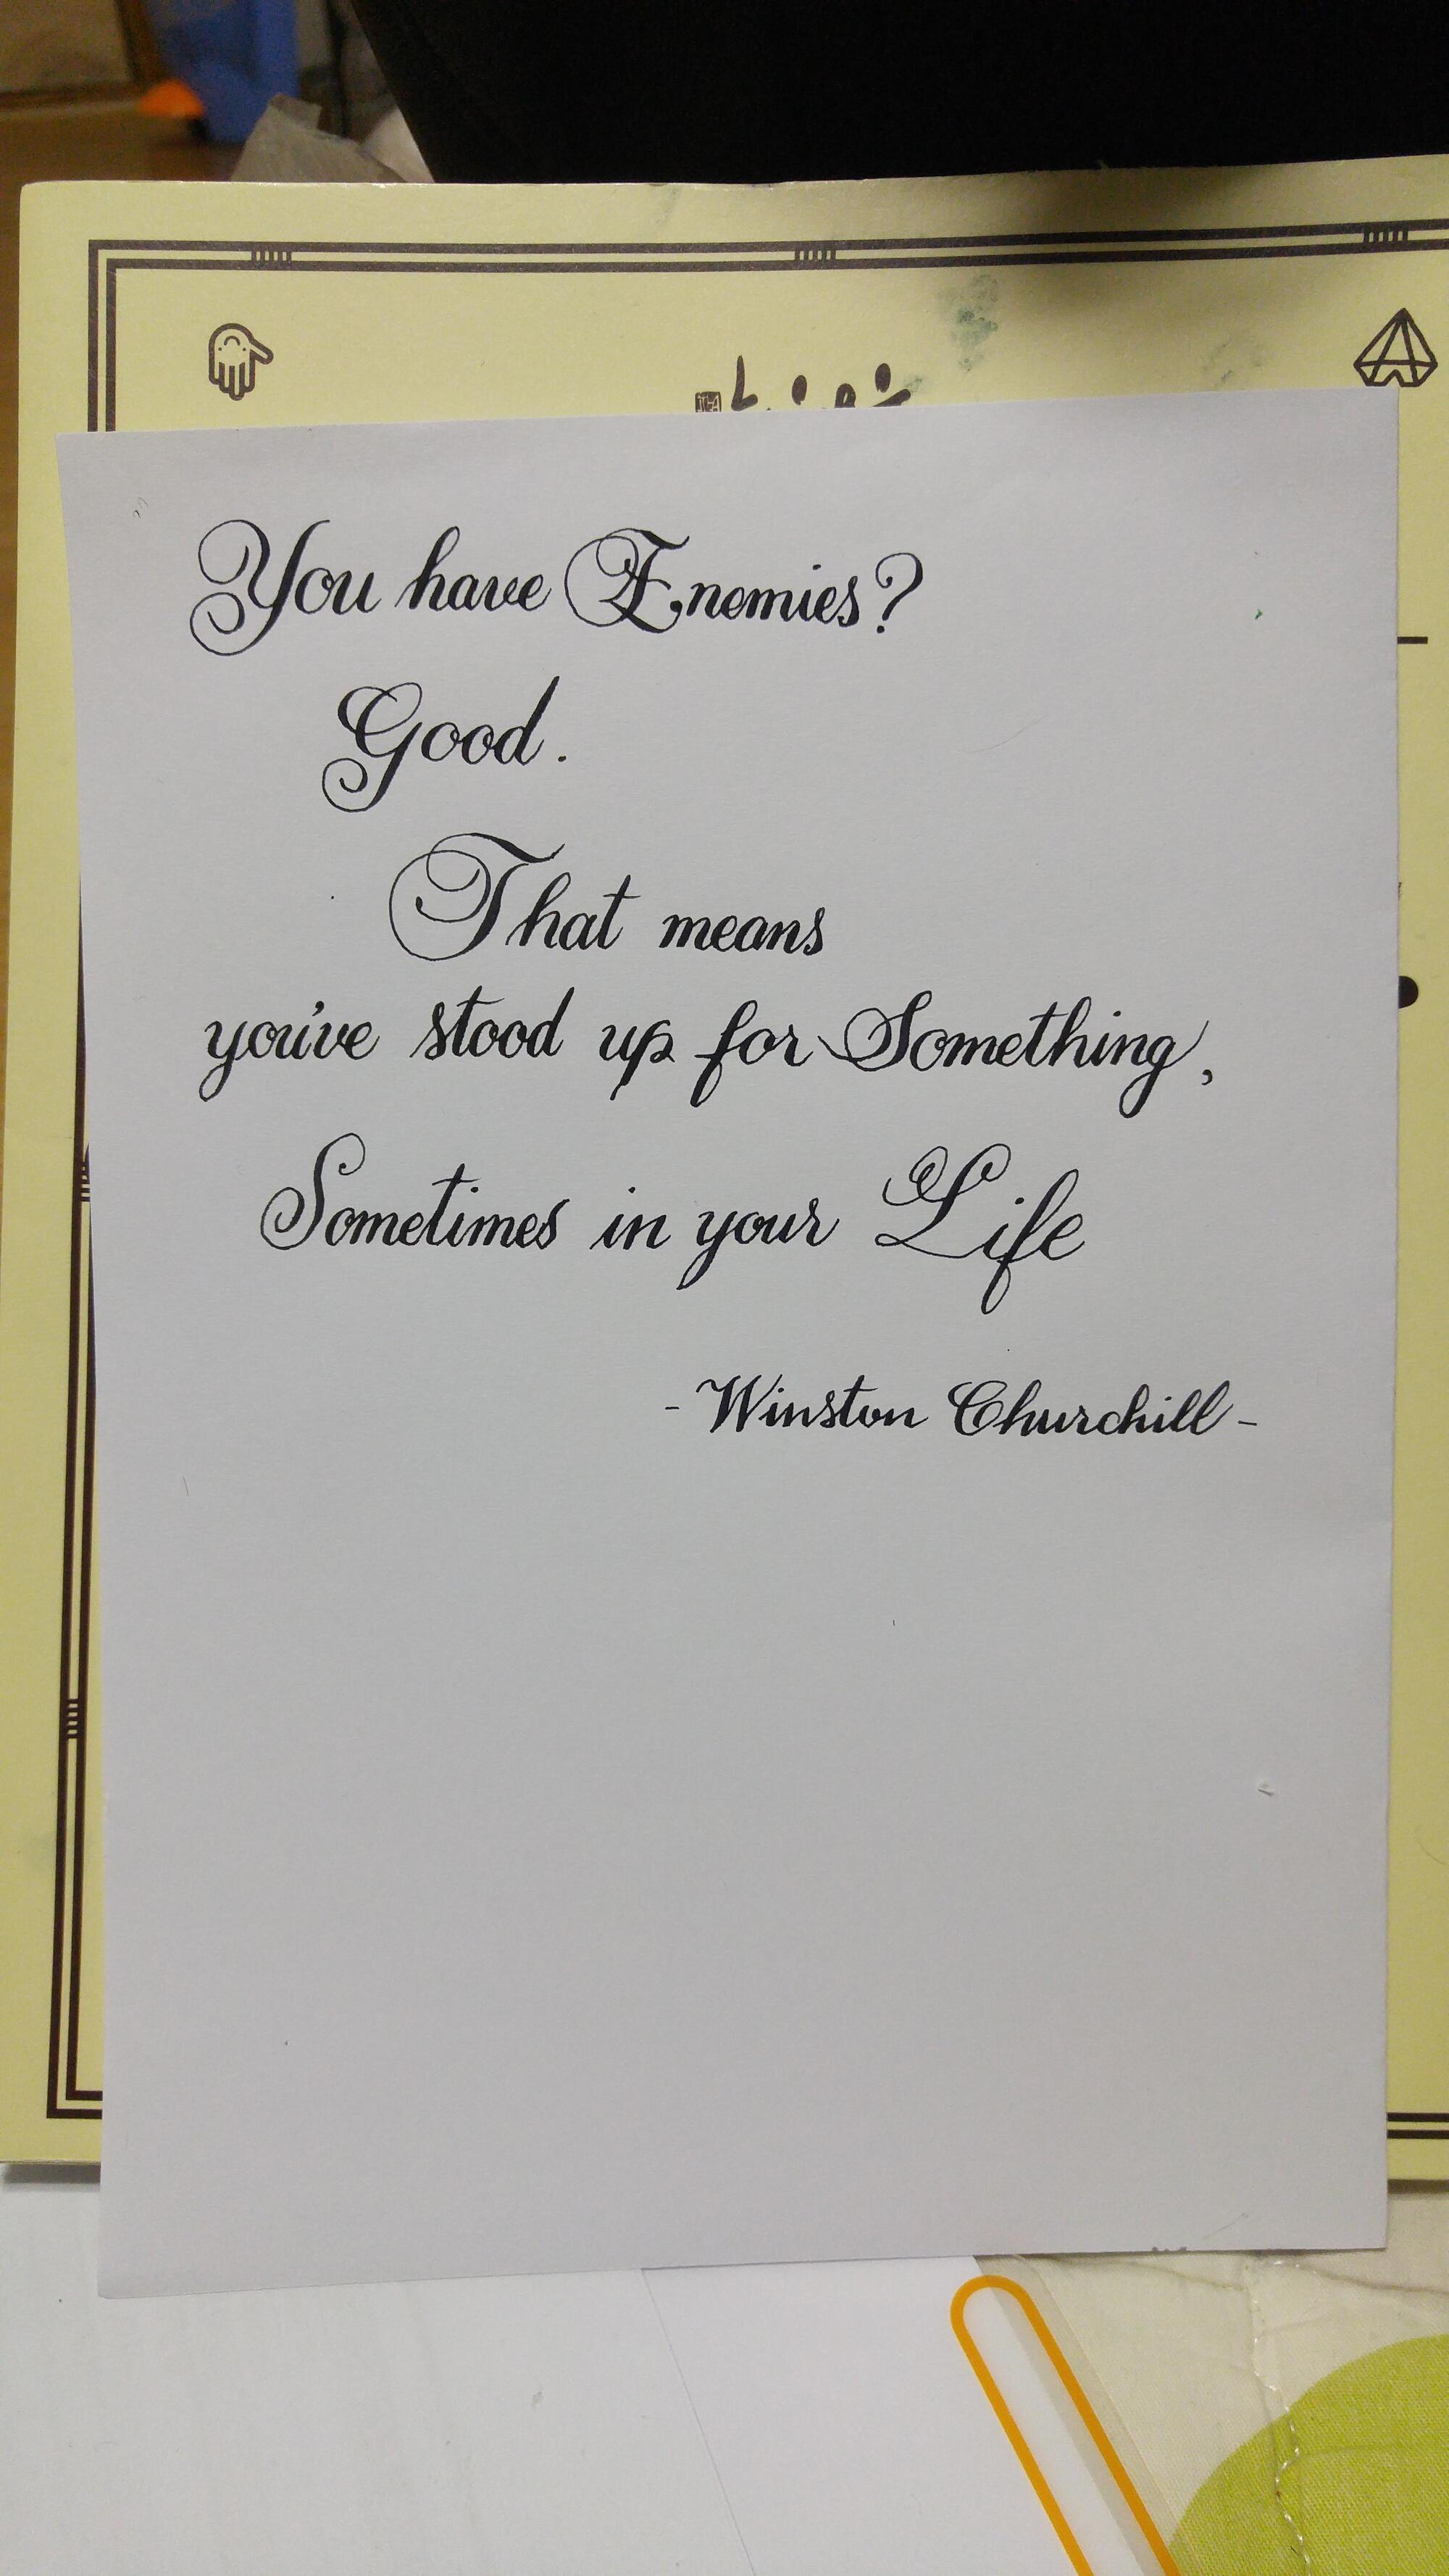 You have Enemies?
Good.
That means
you've stood up for Something,
Sometimes in your Life
- Winston Churchill -